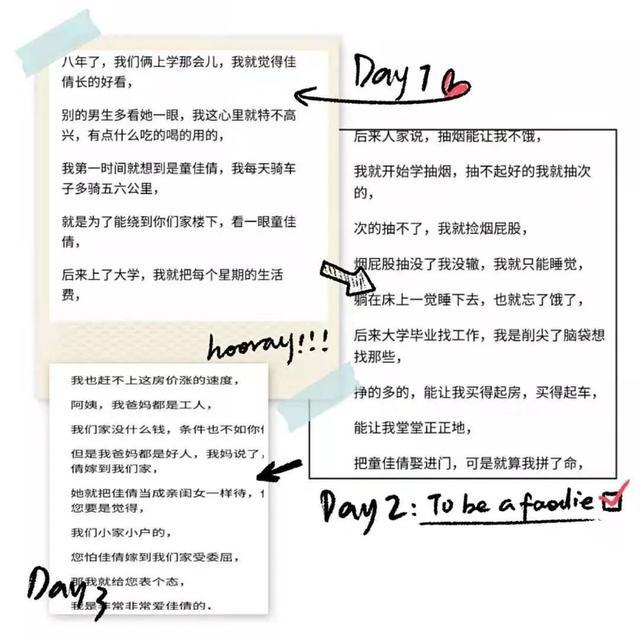 八年了，我们俩上学那会儿，我就觉得佳
倩长的好看，
别的男生多看她一眼，我这心里就特不高
兴，有点什么吃的喝的用的，
我第一时间就想到是童佳倩，我每天骑车
子多骑五六公里，
就是为了能绕到你们家楼下，看一眼童佳
倩，
后来上了大学，我就把每个星期的生活
费，
Day 1
后来人家说，抽烟能让我不饿，
我就开始学抽烟，抽不起好的我就抽次
的，
次的抽不了，我就捡烟屁股，
烟屁股抽没了我没辙，我就只能睡觉，
躺在床上一觉睡下去，也就忘了饿了，
后来大学毕业找工作，我是削尖了脑袋想
找那些，
挣的多的，能让我买得起房，买得起车，
能让我堂堂正正地，
把童佳倩娶进门，可是就算我拼了命，
Day 2: To be a foodie
hooray!!!
我也赶不上这房价涨的速度，
阿姨，我爸妈都是工人，
我们家没什么钱，条件也不如你
但是我爸妈都是好人，我妈说了，
倩嫁到我们家，
她就把佳倩当成亲闺女一样待，
您要是觉得，
我们小家小户的，
您怕佳倩嫁到我们家受委屈，
那我就给您表个态，
我是非常非常爱佳倩的，
Day 3